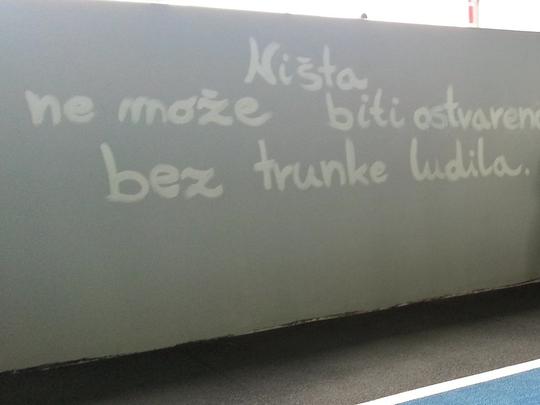 Ništa
ne može biti ostvareno
bez trunke ludila.